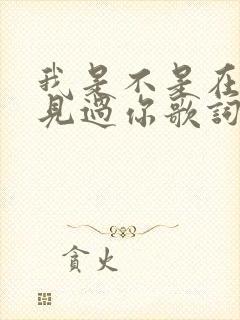 我是不是在
見過你歌詞
貪火